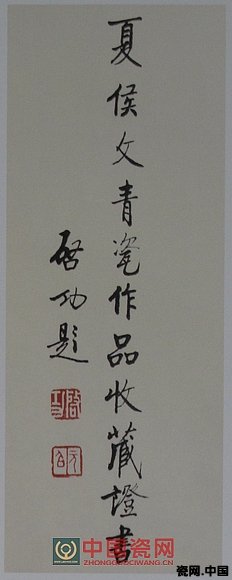 夏侯文青瓷作品收藏證書
啓功題
啟功
元白
中国瓷网
ZHONGGUOCIWANG.CN
瓷网.中国